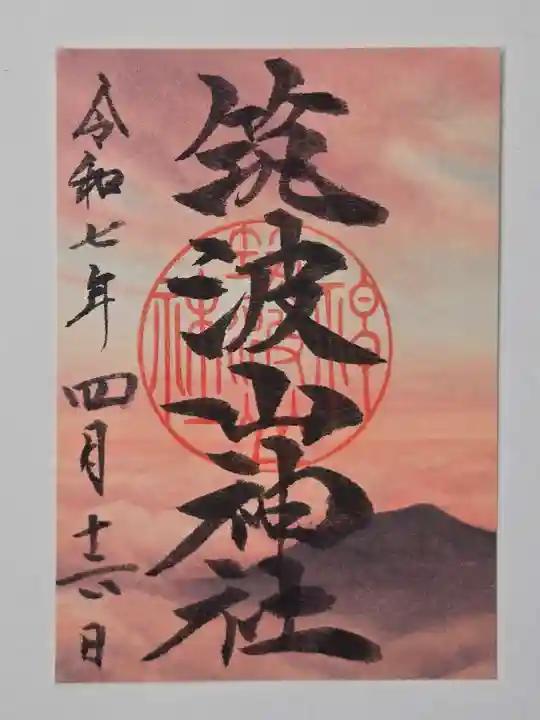 筑波山神社
令和七年四月十六日